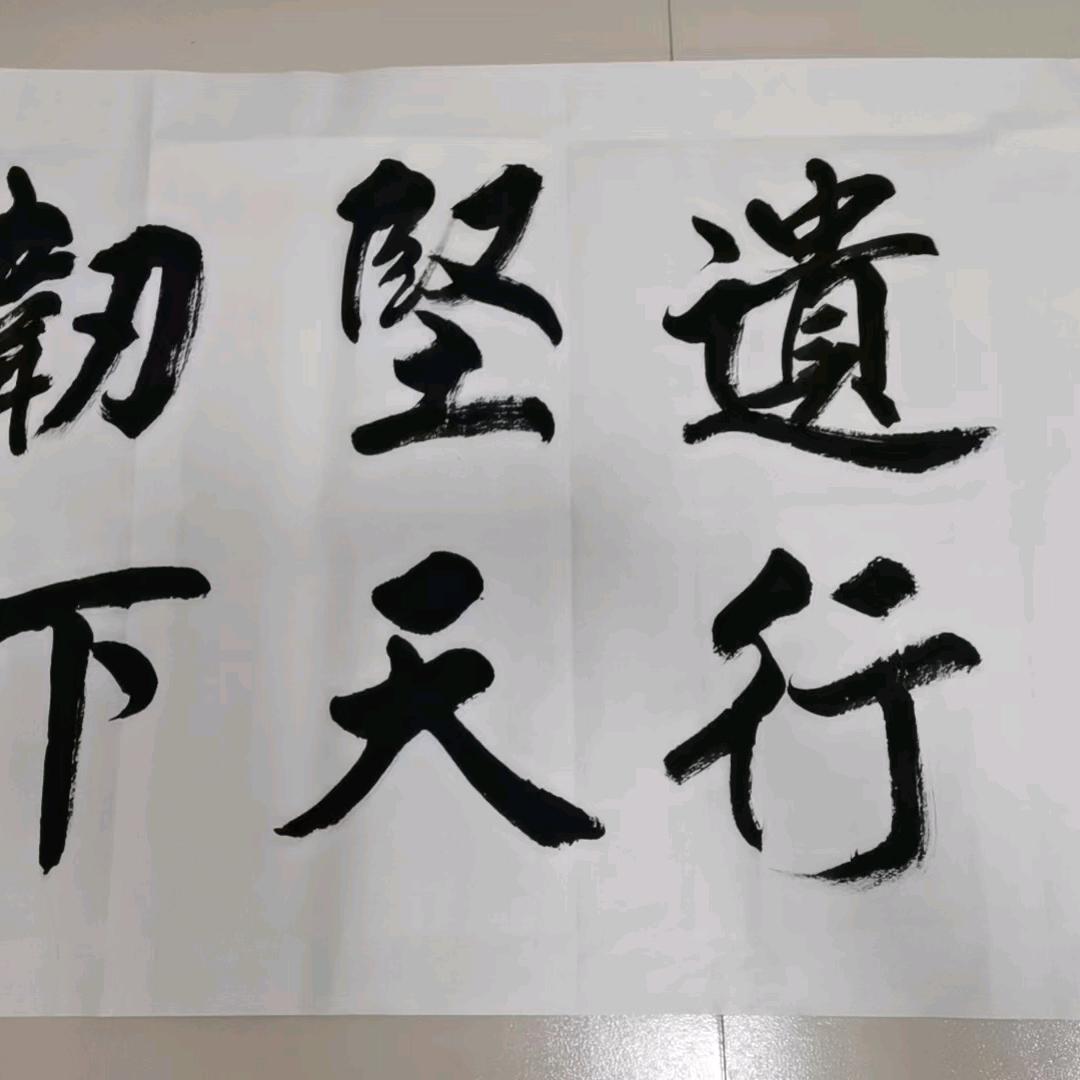 遺堅韌
行天下